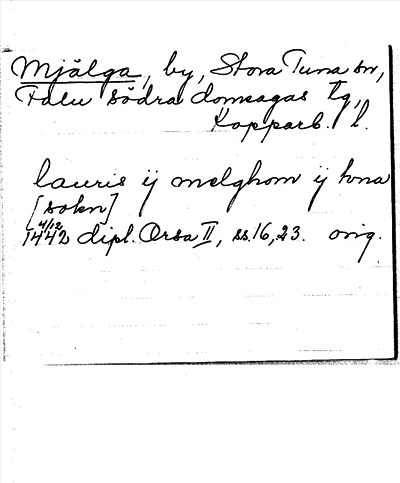 Mjälga, by, Stora Tuna sn,
Falu södra domsagas tg,
Kopparb. l.
lauris ij melghom ij tuna
[sokn]
4/12
1442 dipl. Orsa II, ss. 16, 23. orig.